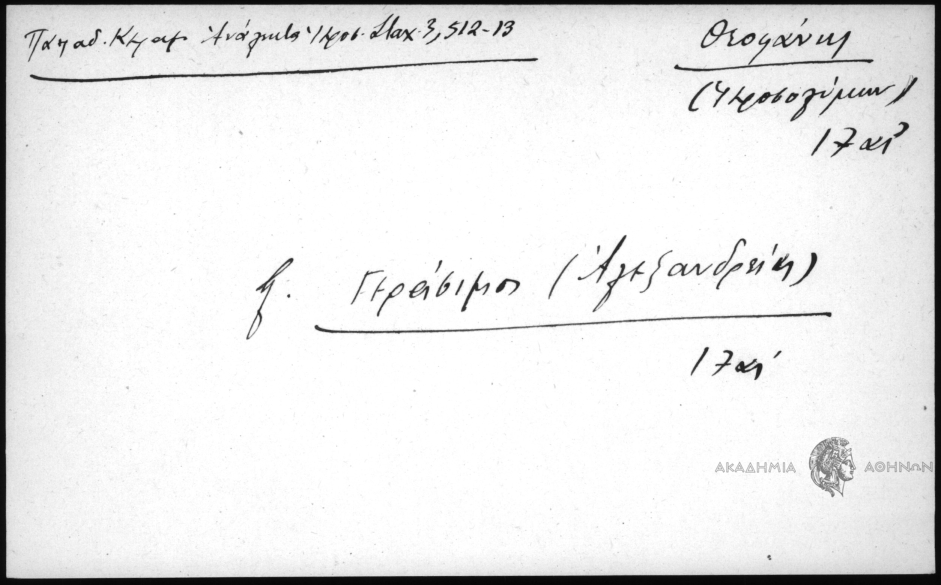 Παπαδ. Κεραμ Ἀνάλεκτα Ἱεροσ. Σταχ. 3, 512-13
Θεοφάνης
(Ἱεροσολύμων)
17 αἰ
Γεράσιμος (Ἀλεξανδρείας)
17 αἰ
ΑΚΑΔΗΜΙΑ ΑΘΗΝΩΝ